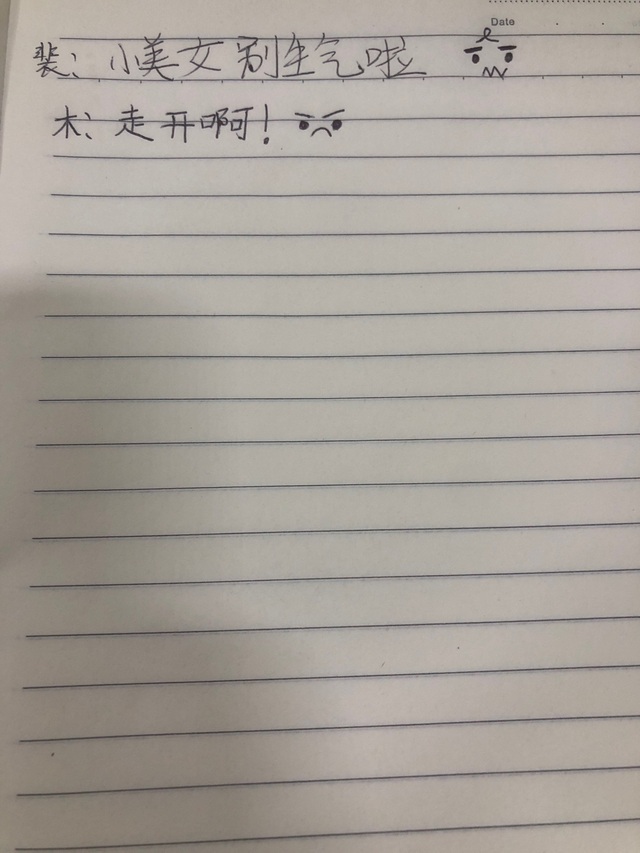 Date
裴：小美文别生气啦
木：走开啊！